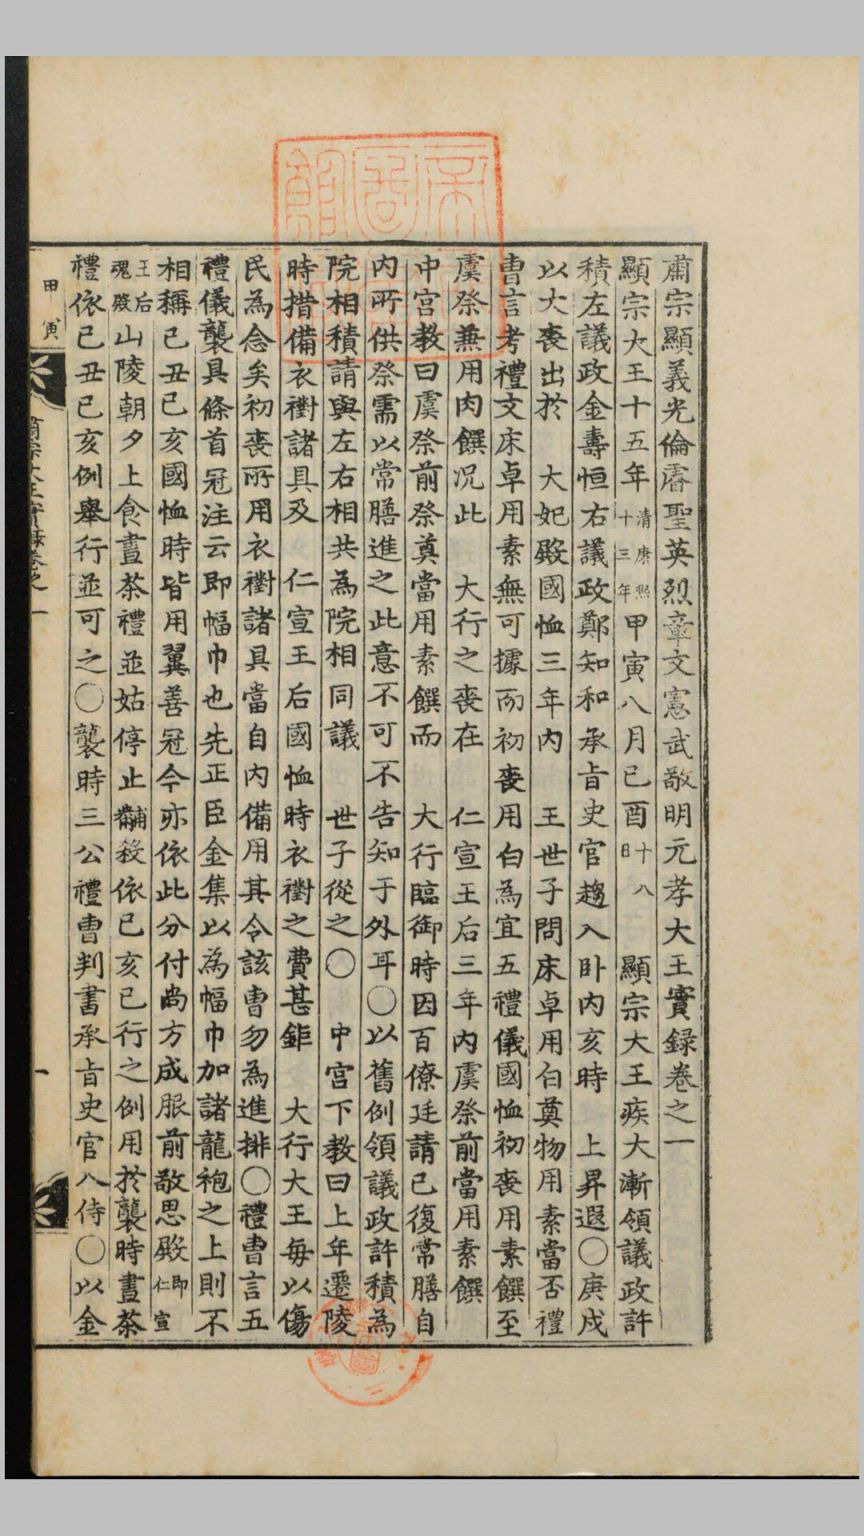 肅宗顯義光倫睿聖英烈章文憲武敬明元孝大王實錄卷之一
顯宗大王十五年淸康熙十三年甲寅八月己酉十八日 顯宗大王疾大漸領議政許
積左議政金壽恒右議政鄭知和承旨史官趨入臥內亥時 上昇遐〇庚戌
以大喪出於 大妃殿國恤三年內 王世子問床卓用白奠物用素當否禮
曹言考禮文床卓用素無可據而初喪用白爲宜五禮儀國恤初喪用素饌至
虞祭兼用肉饌况此 大行之喪在 仁宣王后三年內虞祭前當用素饌
中宮敎曰虞祭前祭奠當用素饌而 大行臨御時因百僚廷請已復常膳自
內所供祭需以常膳進之此意不可不告知于外耳〇以舊例領議政許積爲
院相積請與左右相共爲院相同議 世子從之〇 中宮下敎曰上年遷陵
時措備衣襨諸具及 仁宣王后國恤時衣襨之費甚鉅 大行大王每以傷
民爲念矣初喪所用衣襨諸具當自內備用其令該曹勿爲進排〇禮曹言五
禮儀襲具條首冠注云卽幅巾也先正臣金集以爲幅巾加諸龍袍之上則不
相稱己丑己亥國恤時皆用翼善冠今亦依此分付尙方成服前敬思殿卽仁宣
王后魂殿山陵朝夕上食晝茶禮並姑停止黼殺依己亥已行之例用於襲時晝茶
禮依己丑己亥例擧行並可之〇襲時三公禮曹判書承旨史官入侍〇以金
甲寅
肅宗大王實錄卷之一
一